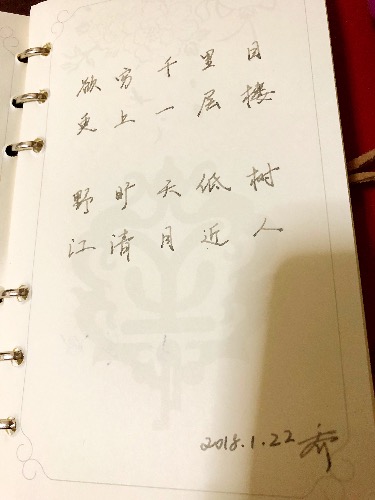 欲穷千里目
更上一层楼
野旷天低树
江清月近人
2018.1.22